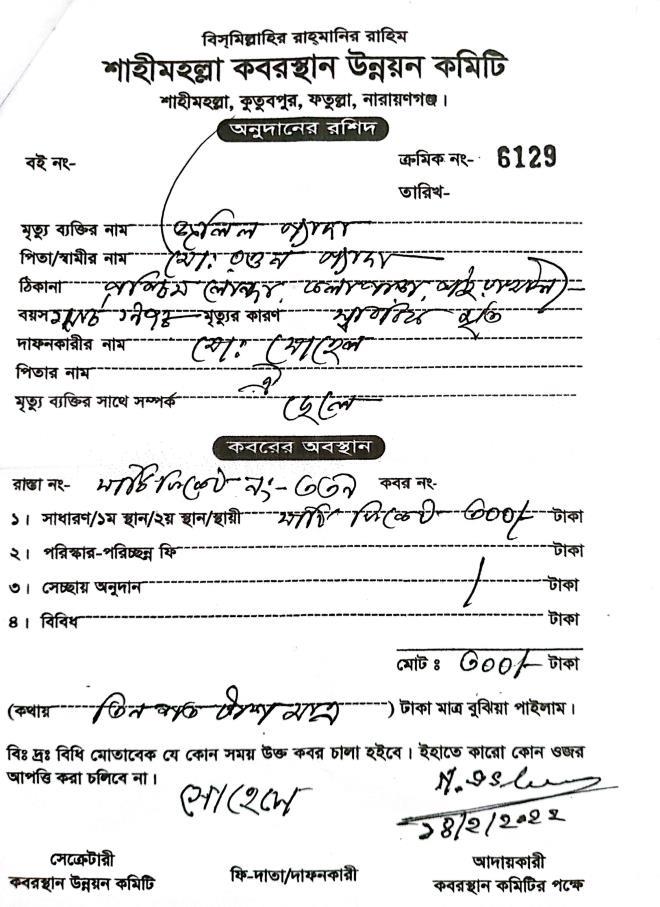 বিস্‌মিল্লাহির রাহ্‌মানির রাহিম
শাহীমহল্লা কবরস্থান উন্নয়ন কমিটি
শাহীমহল্লা, কুতুবপুর, ফতুল্লা, নারায়ণগঞ্জ।
অনুদানের রশিদ
বই নং- ক্রমিক নং- 6129
তারিখ-
মৃত্যু ব্যক্তির নাম
পিতা/স্বামীর নাম মো:
ঠিকানা পশ্চিম
বয়স মৃত্যুর কারণ
দাফনকারীর নাম মো: সোহেল
পিতার নাম ঐ
মৃত্যু ব্যক্তির সাথে সম্পর্ক ছেলে
কবরের অবস্থান
রাস্তা নং- সার্টিফিকেট নং- ৩৩৯ কবর নং-
১। সাধারণ/১ম স্থান/২য় স্থান/স্থায়ী সার্টিফিকেট ৩০০/- টাকা
২। পরিস্কার-পরিচ্ছন্ন ফি টাকা
৩। সেচ্ছায় অনুদান / টাকা
৪। বিবিধ টাকা
মোট ঃ ৩০০/- টাকা
(কথায় তিন শত টাকা মাত্র) টাকা মাত্র বুঝিয়া পাইলাম।
বিঃ দ্রঃ বিধি মোতাবেক যে কোন সময় উক্ত কবর চালা হইবে। ইহাতে কারো কোন ওজর
আপত্তি করা চলিবে না।
সোহেল
১৪/2/২০২২
সেক্রেটারী ফি-দাতা/দাফনকারী আদায়কারী
কবরস্থান উন্নয়ন কমিটি কবরস্থান কমিটির পক্ষে